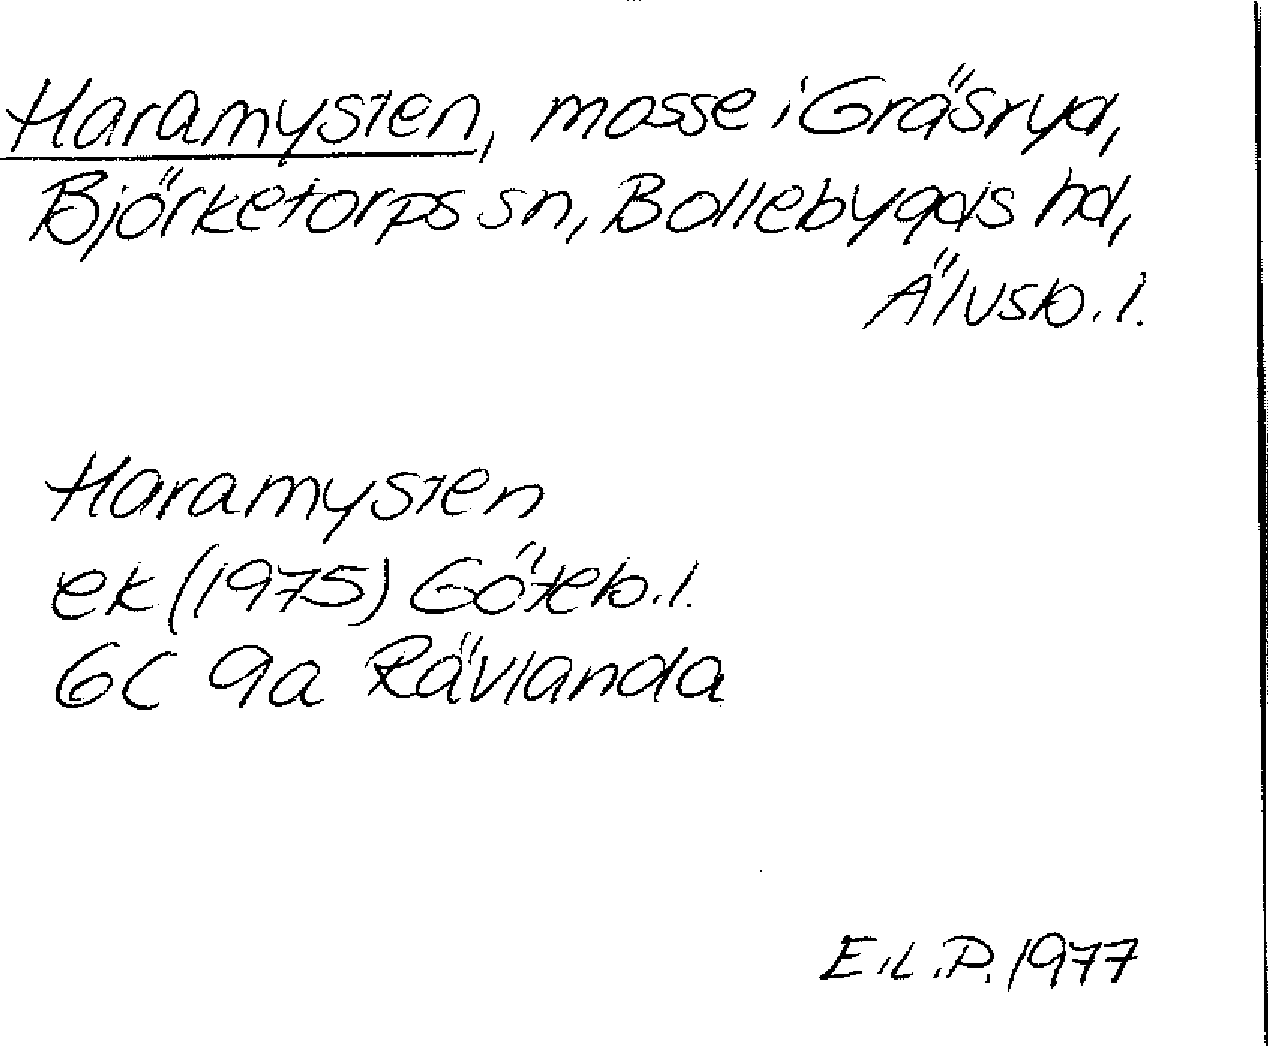 Haramysten, mosse i Gräsryd,
Björketorps sn, Bollebygds hd,
Älvsb. l.
Haramysten
ek (1975) Göteb. l.
6C 9a Rävlanda
E.L.P. 1977